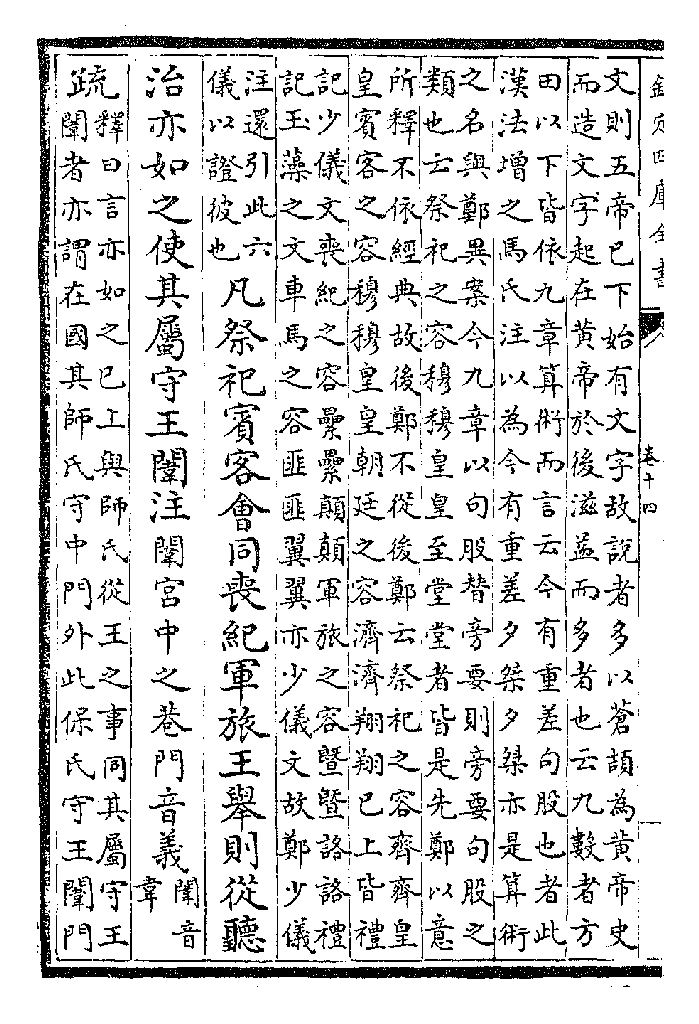 欽定四庫全書
卷十四
文則五帝已下始有文字故說者多以蒼頡為黃帝史
而造文字起在黃帝於後滋益而多者也云九數者方
田以下皆依九章算術而言云今有重差句股也者此
漢法增之馬氏注以為今有重差夕桀夕桀亦是算術
之名與鄭異案今九章以句股替旁要則旁要句股之
類也云祭祀之容穆穆皇皇至堂堂者皆是先鄭以意
所釋不依經典故後鄭不從後鄭云祭祀之容齊齊皇
皇賓客之容穆穆皇皇朝廷之容濟濟翔翔已上皆禮
記少儀文喪紀之容纍纍顛顛軍旅之容暨暨詻詻禮
記玉藻之文車馬之容匪匪翼翼亦少儀文故鄭少儀
注還引此六
儀以證彼也
凡祭祀賓客會同喪紀軍旅王舉則從聽
治亦如之使其屬守王闈注闈宮中之巷門音義闈音
韋
疏釋曰言亦如之已上與師氏從王之事同其屬守王
闈者亦謂在國其師氏守中門外此保氏守王闈門